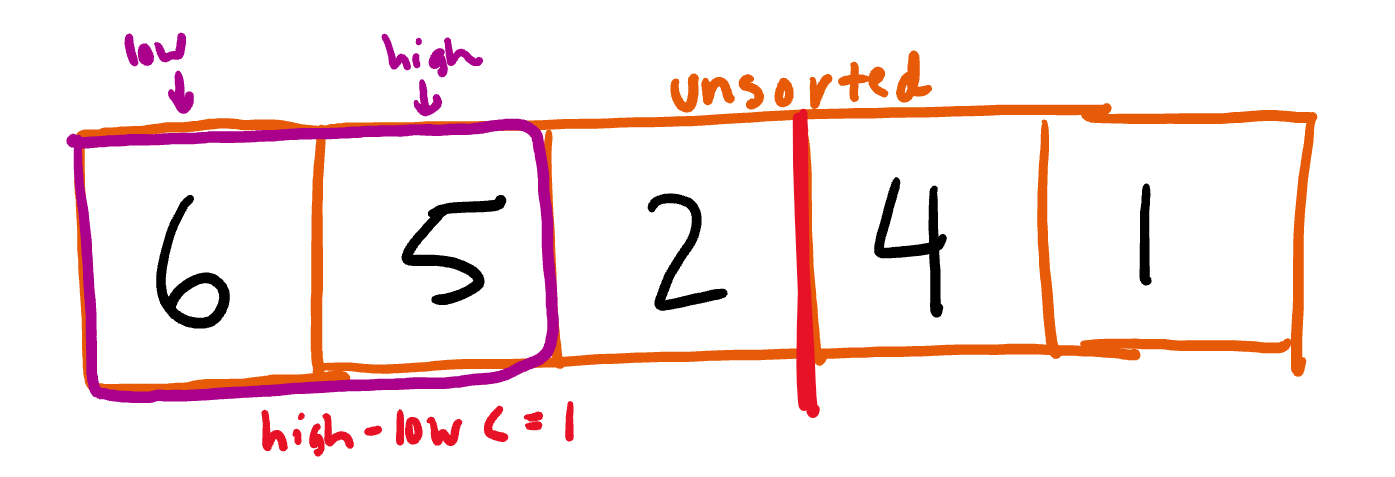 low high
unsorted
6 5 2 4 1
high-low <= 1